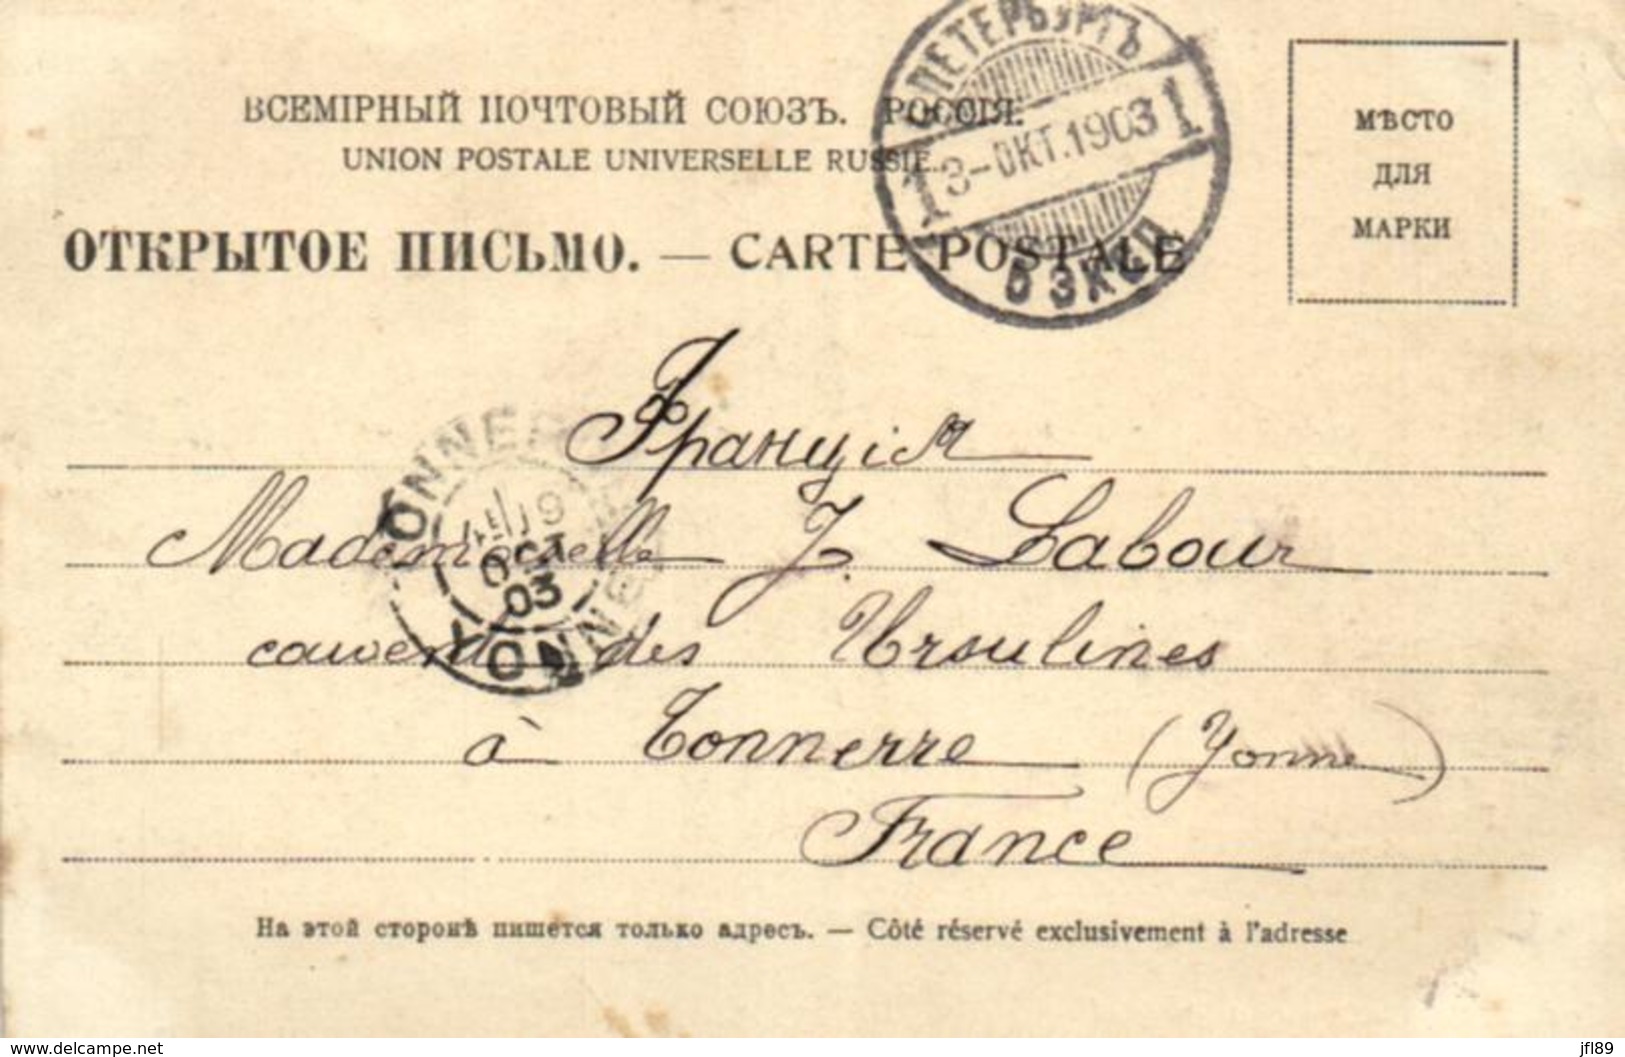 С.ПЕТЕРБУРГЪ
3-ОКТ.1903
1 1
5 ЭКСП.
ВСЕМІРНЫЙ ПОЧТОВЫЙ СОЮЗЪ. РОССІЯ.
UNION POSTALE UNIVERSELLE RUSSIE.
ОТКРЫТОЕ ПИСЬМО. — CARTE POSTALE
МѢСТО
ДЛЯ
МАРКИ
Франція
Mademoiselle J. Labour
couvent des Ursulines
à Tonnerre (Yonne)
France
TONNERRE
19
OCT
03
YONNE
На этой сторонѣ пишется только адресъ. — Côté réservé exclusivement à l'adresse
www.delcampe.net
jfl89